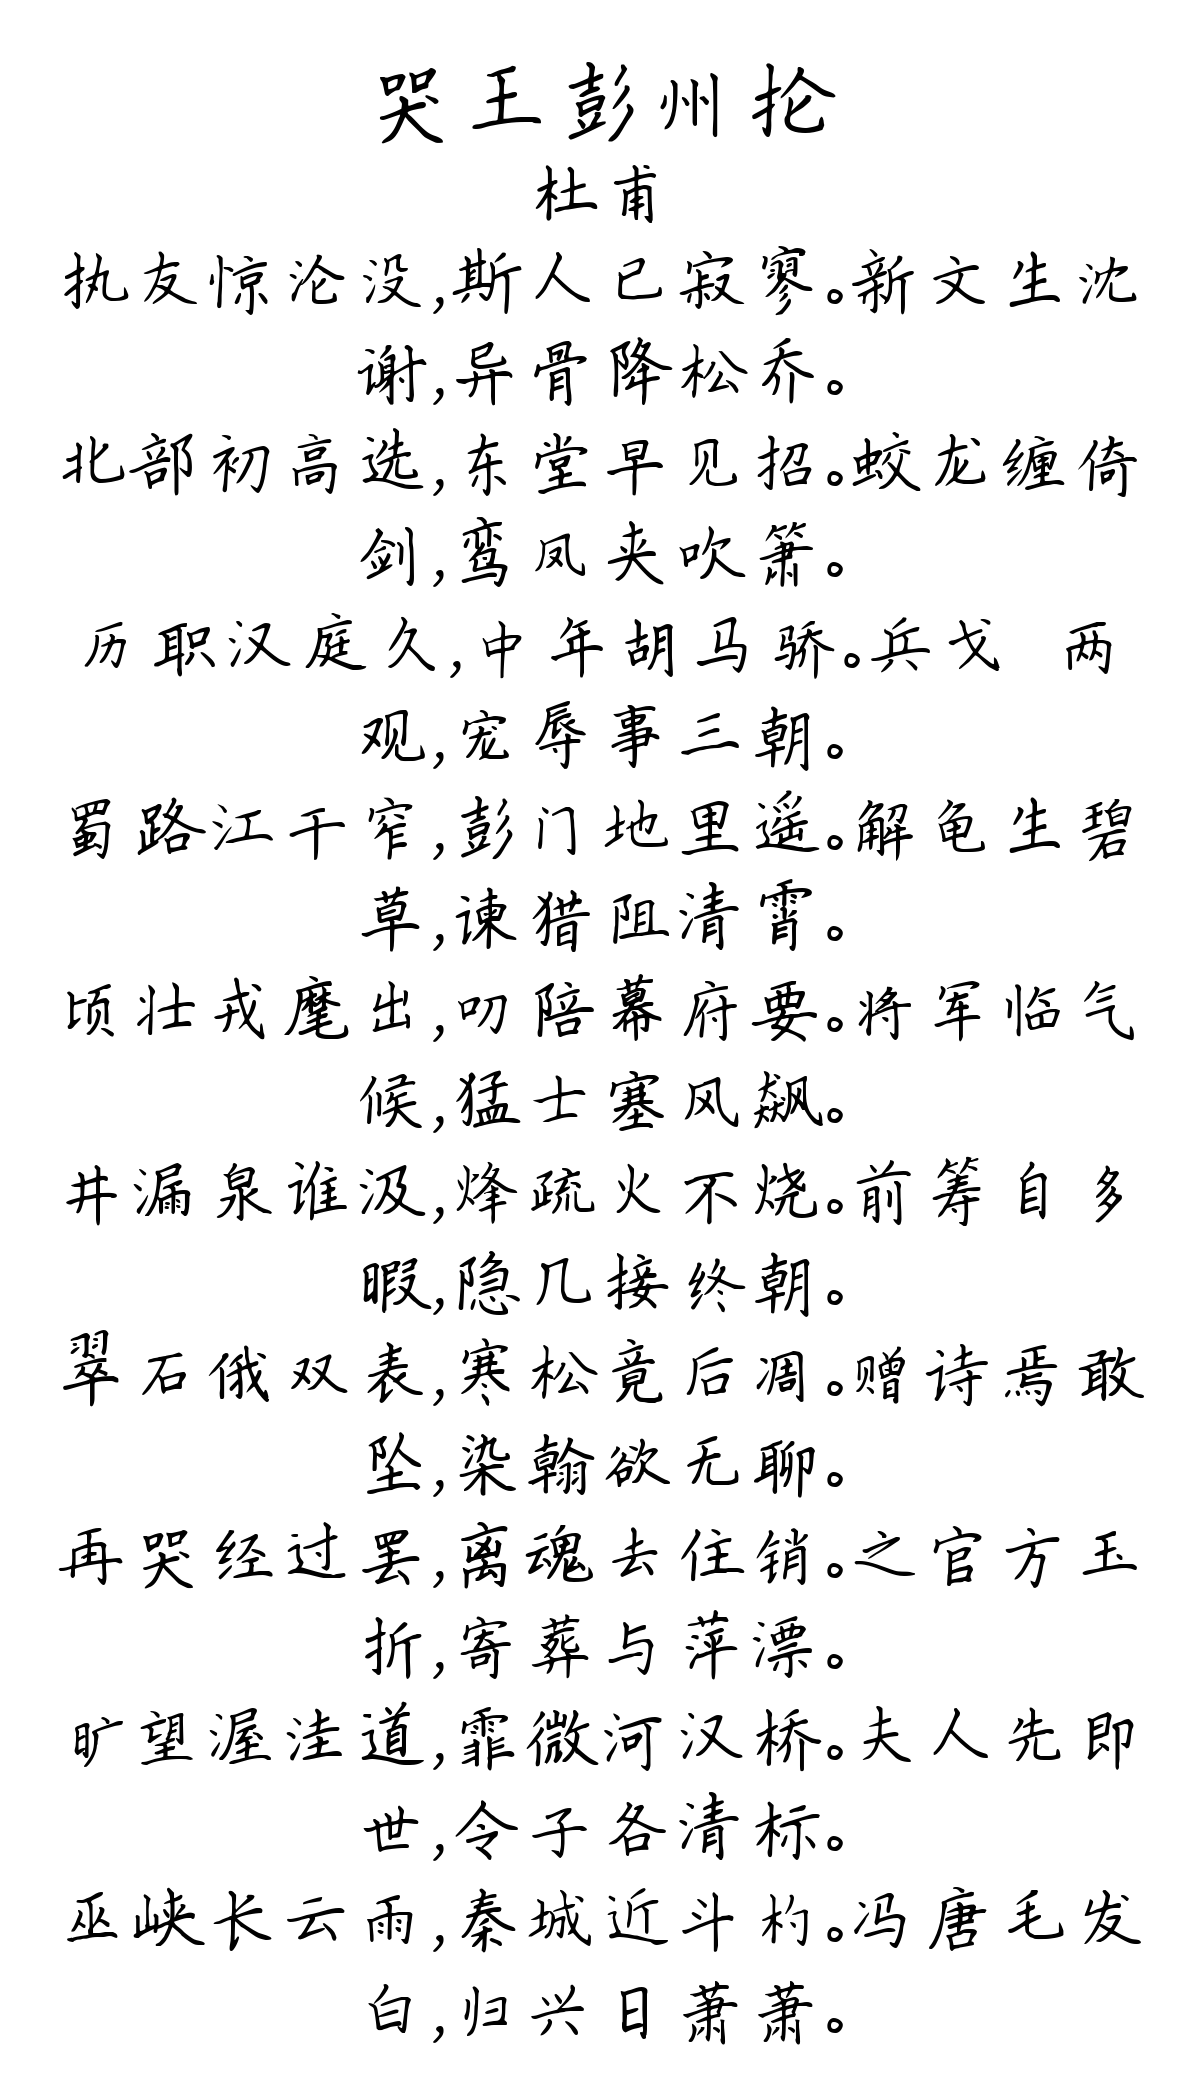 哭王彭州抡
杜甫
执友惊沦没,斯人已寂寥。新文生沈
谢,异骨降松乔。
北部初高选,东堂早见招。蛟龙缠倚
剑,鸾凤夹吹箫。
历职汉庭久,中年胡马骄。兵戈 两
观,宠辱事三朝。
蜀路江干窄,彭门地里遥。解龟生碧
草,谏猎阻清霄。
顷壮戎麾出,叨陪幕府要。将军临气
候,猛士塞风飙。
井漏泉谁汲,烽疏火不烧。前筹自多
暇,隐几接终朝。
翠石俄双表,寒松竟后凋。赠诗焉敢
坠,染翰欲无聊。
再哭经过罢,离魂去住销。之官方玉
折,寄葬与萍漂。
旷望渥洼道,霏微河汉桥。夫人先即
世,令子各清标。
巫峡长云雨,秦城近斗杓。冯唐毛发
白,归兴日萧萧。